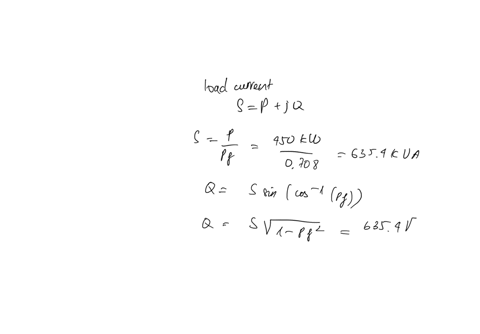 load current
S = P + jQ
S = P/Pf = 450 kW/0.708 = 635.4 kVA
Q = S sin (cos⁻¹ (Pf))
Q = S √(1 - Pf²) = 635.4 √